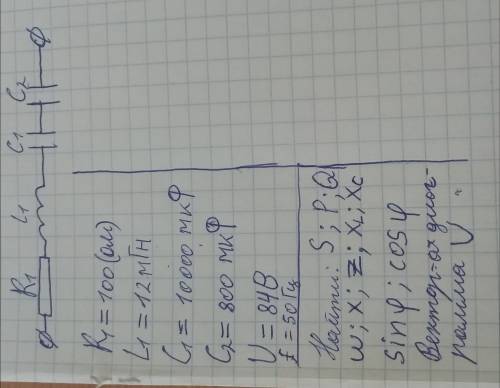 R₁ L₁ C₁ C₂
R₁ = 100 (ом)
L₁ = 12 мГн
C₁ = 10000 мкФ
C₂ = 800 мкФ
U = 84 В
f = 50 Гц
Найти: S; P; Q
w; x; z; xL; xc
sinφ; cosφ
Вектор-ая диаг-
рамма U